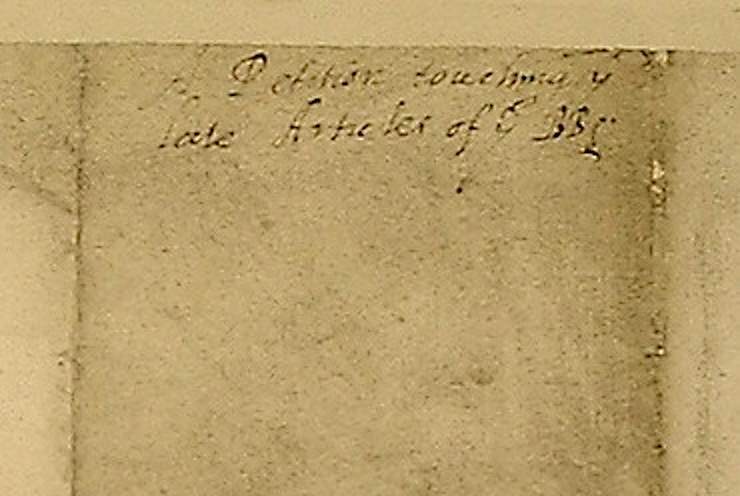 A Petition touching ye
late Articles of ye BBs